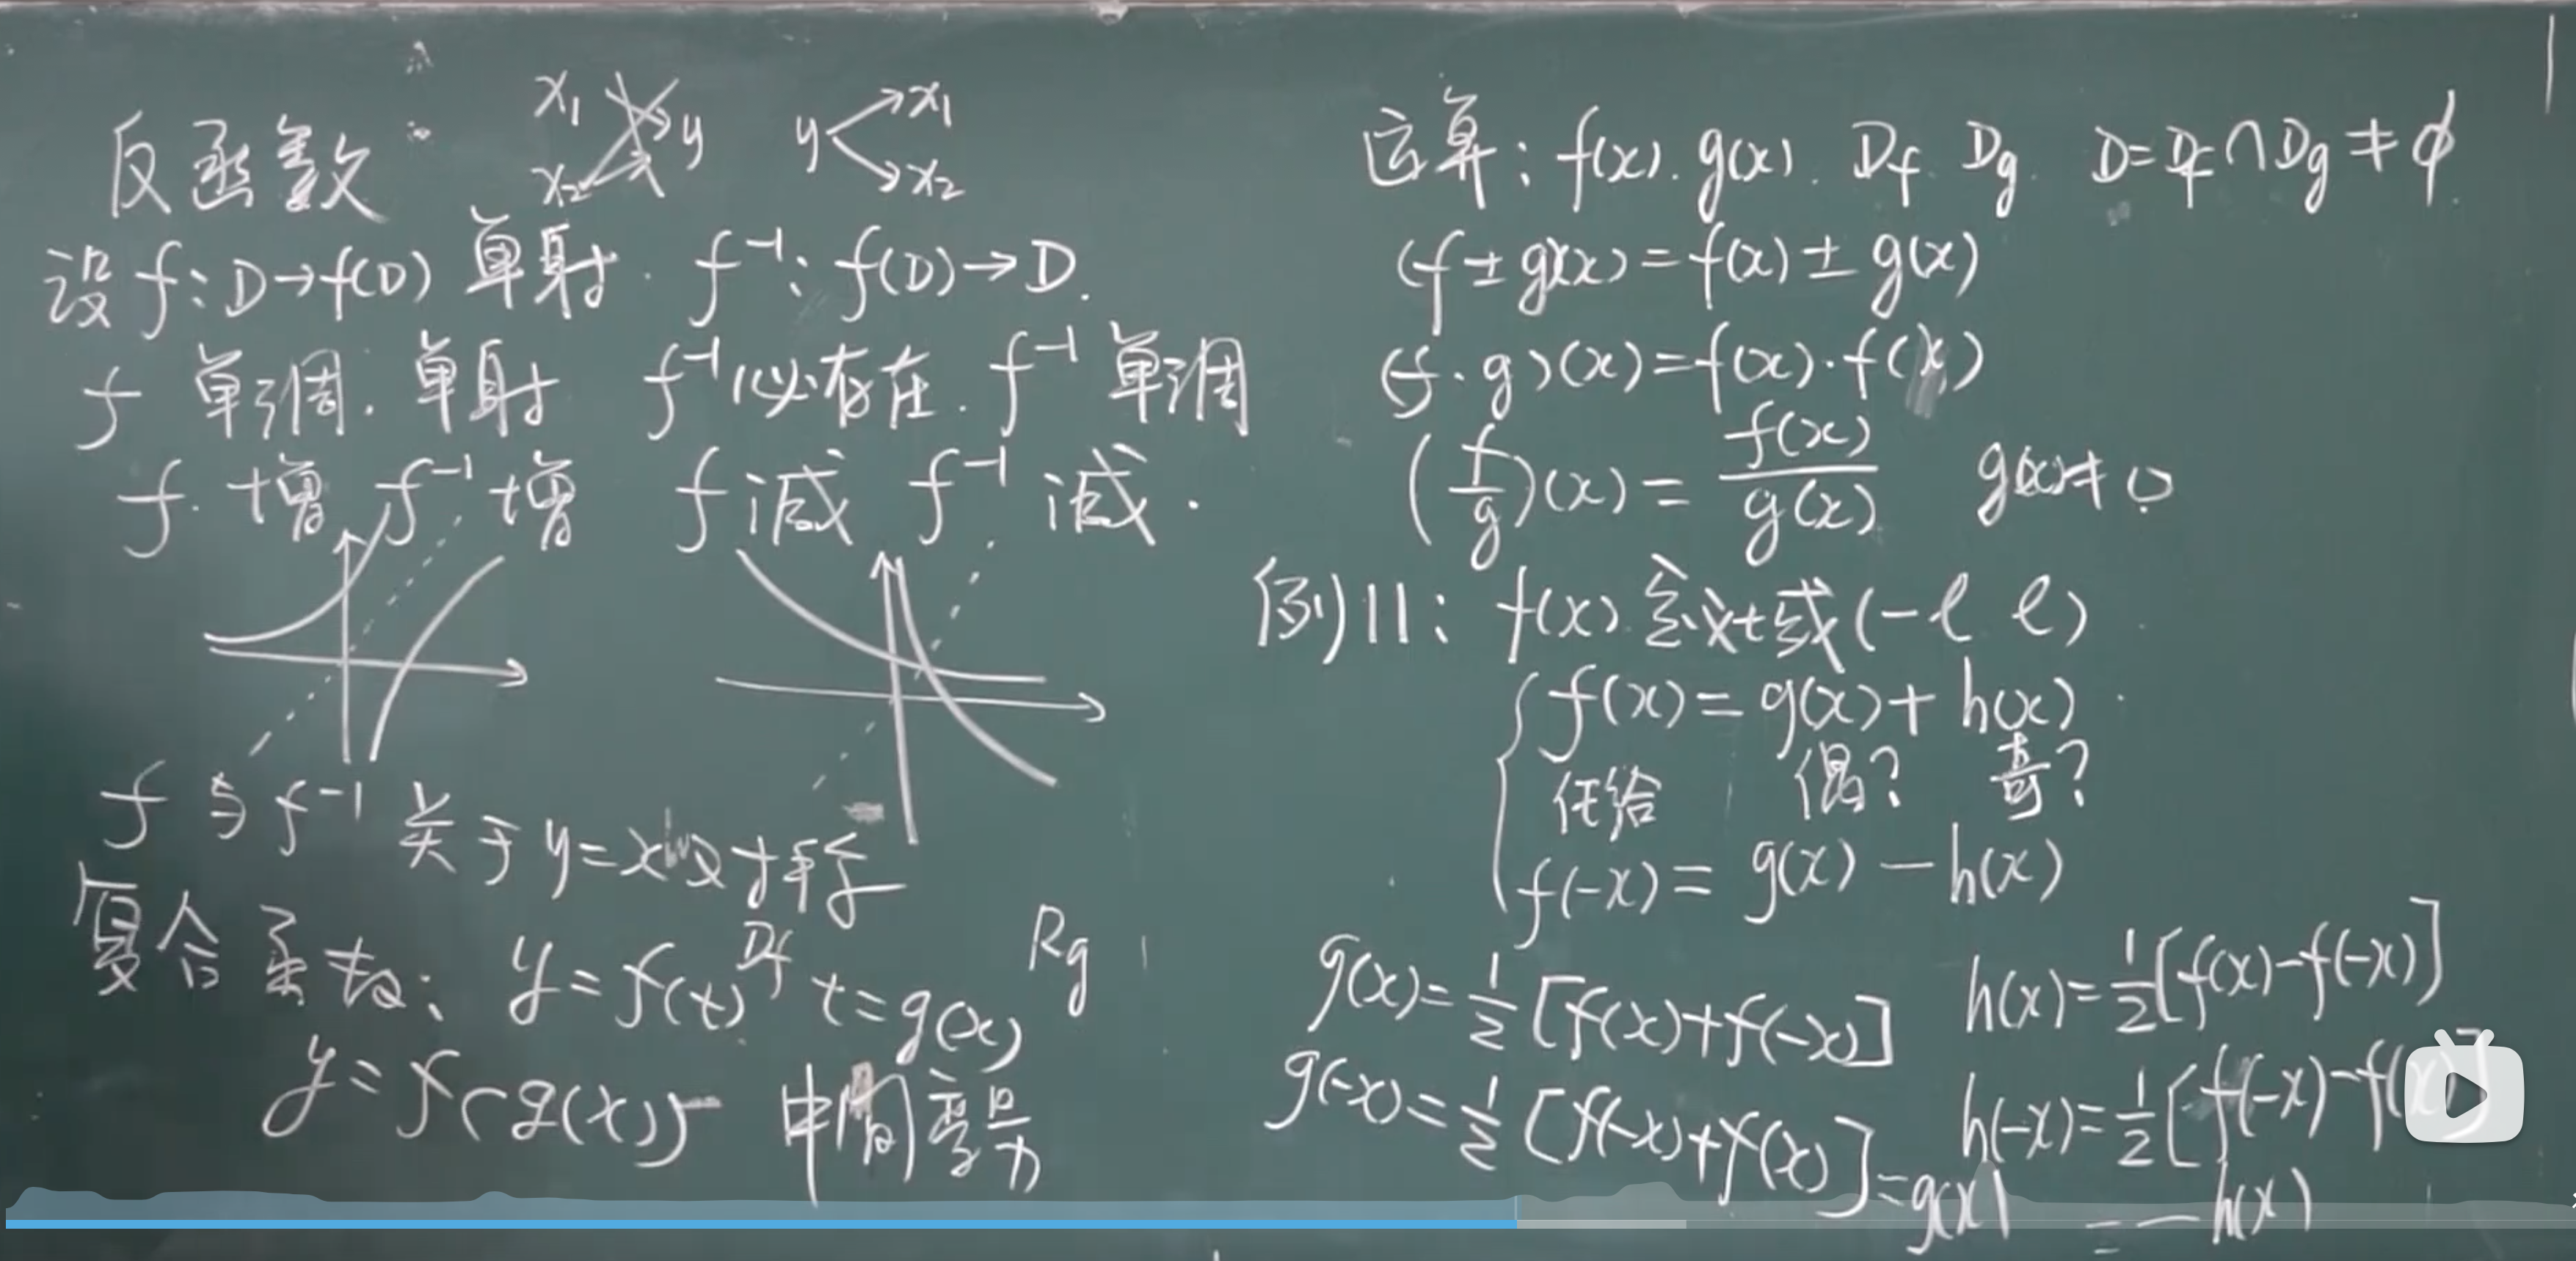 反函数: x₁ x₂ y y x₁ x₂
设 f: D→f(D) 单射. f⁻¹: f(D)→D.
f 单调. 单射 f⁻¹必存在. f⁻¹ 单调
f. 增 f⁻¹ 增 f 减 f⁻¹ 减.
f 与 f⁻¹ 关于 y=x 对称
复合函数: y=f(t) Df t=g(x) Rg
y=f(g(x)) 中间变量
运算: f(x). g(x). Df Dg. D=Df∩Dg≠ϕ.
(f±g)(x)=f(x)±g(x)
(f·g)(x)=f(x)·f(x)
(f/g)(x)=f(x)/g(x) g(x)≠0
例11: f(x) 定义域(-ℓ ℓ)
f(x)=g(x)+h(x)
任给 偶? 奇?
f(-x)=g(x)-h(x)
g(x)=1/2[f(x)+f(-x)] h(x)=1/2[f(x)-f(-x)]
g(-x)=1/2[f(-x)+f(x)]=g(x) h(-x)=1/2[f(-x)-f(x)]
=-h(x)